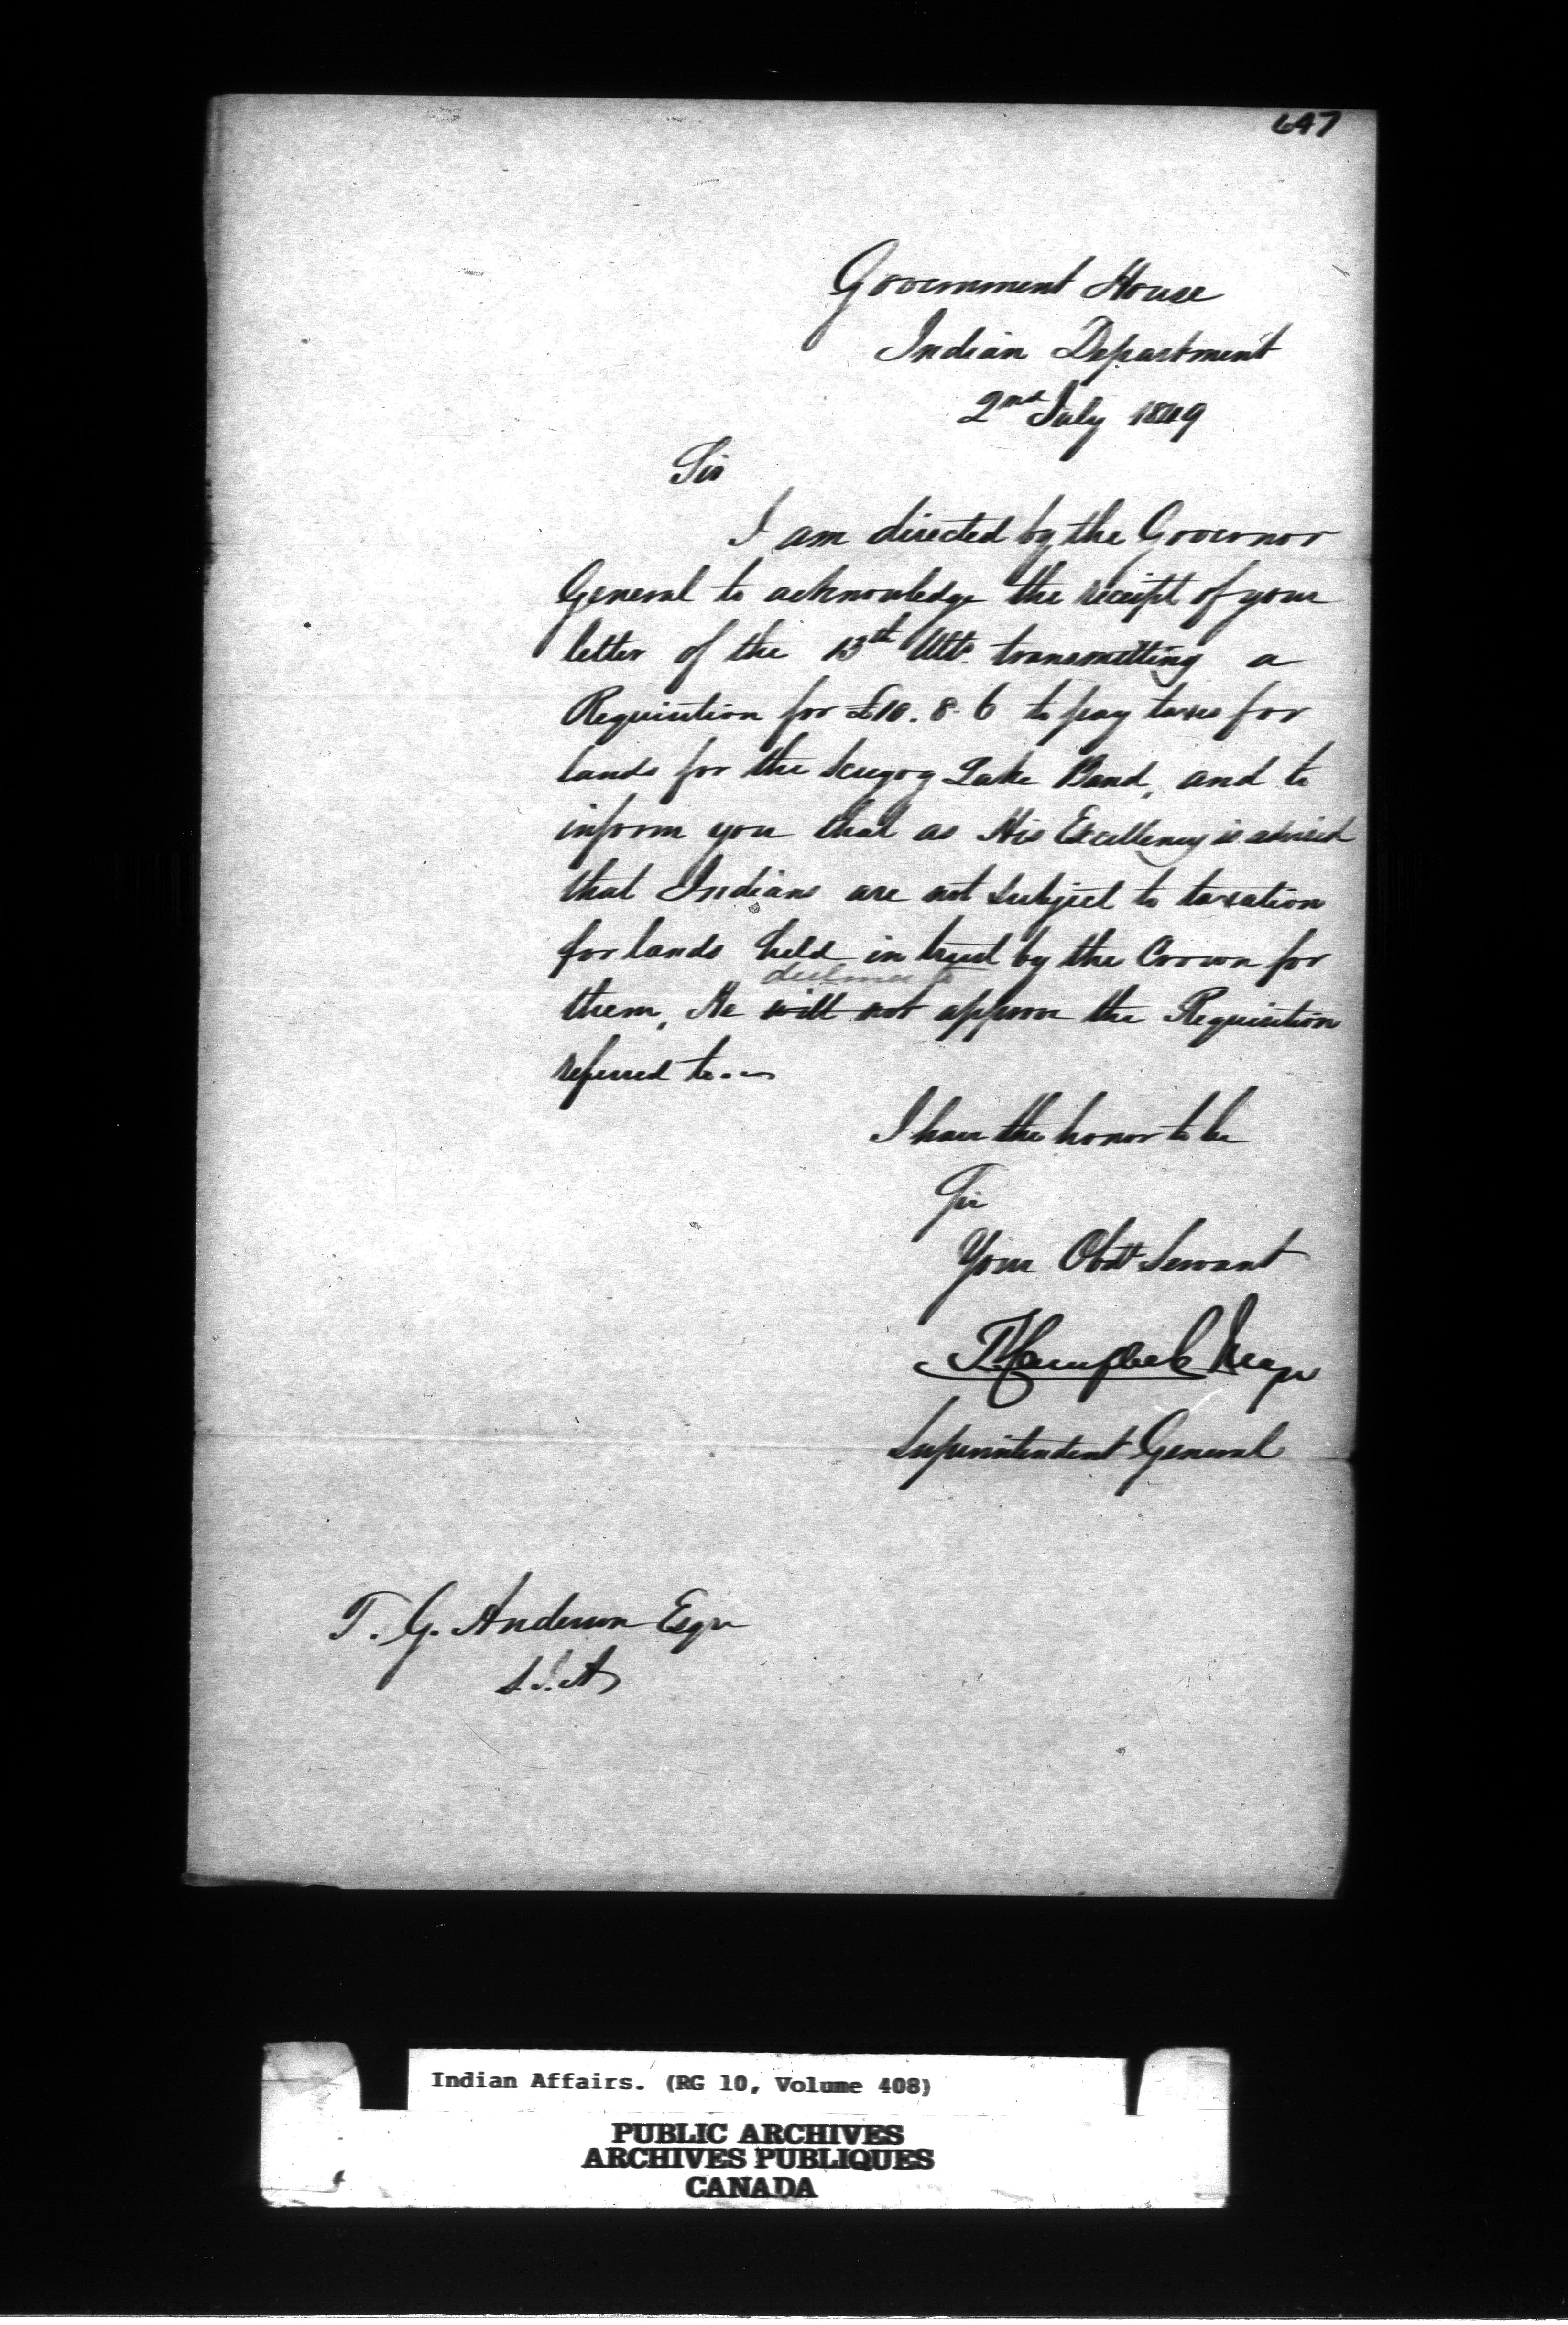 647
Government House
Indian Department
2nd July 1849
Sir
I am directed by the Governor
General to acknowledge the receipt of your
letter of the 13th Ulto. transmitting a
Requisition for £10. 8. 6 to pay taxes for
lands for the Scugog Lake Band, and to
inform you that as His Excellency is advised
that Indians are not subject to taxation
for lands held in trust by the Crown for
declines to
them, He will not approve the Requisition
referred to.
I have the honor to be
Sir
Your Obdt Servant
T Campbell Major
Superintendent General
T. G. Anderson Esqr
S.I.A
Indian Affairs. (RG 10, Volume 408)
PUBLIC ARCHIVES
ARCHIVES PUBLIQUES
CANADA